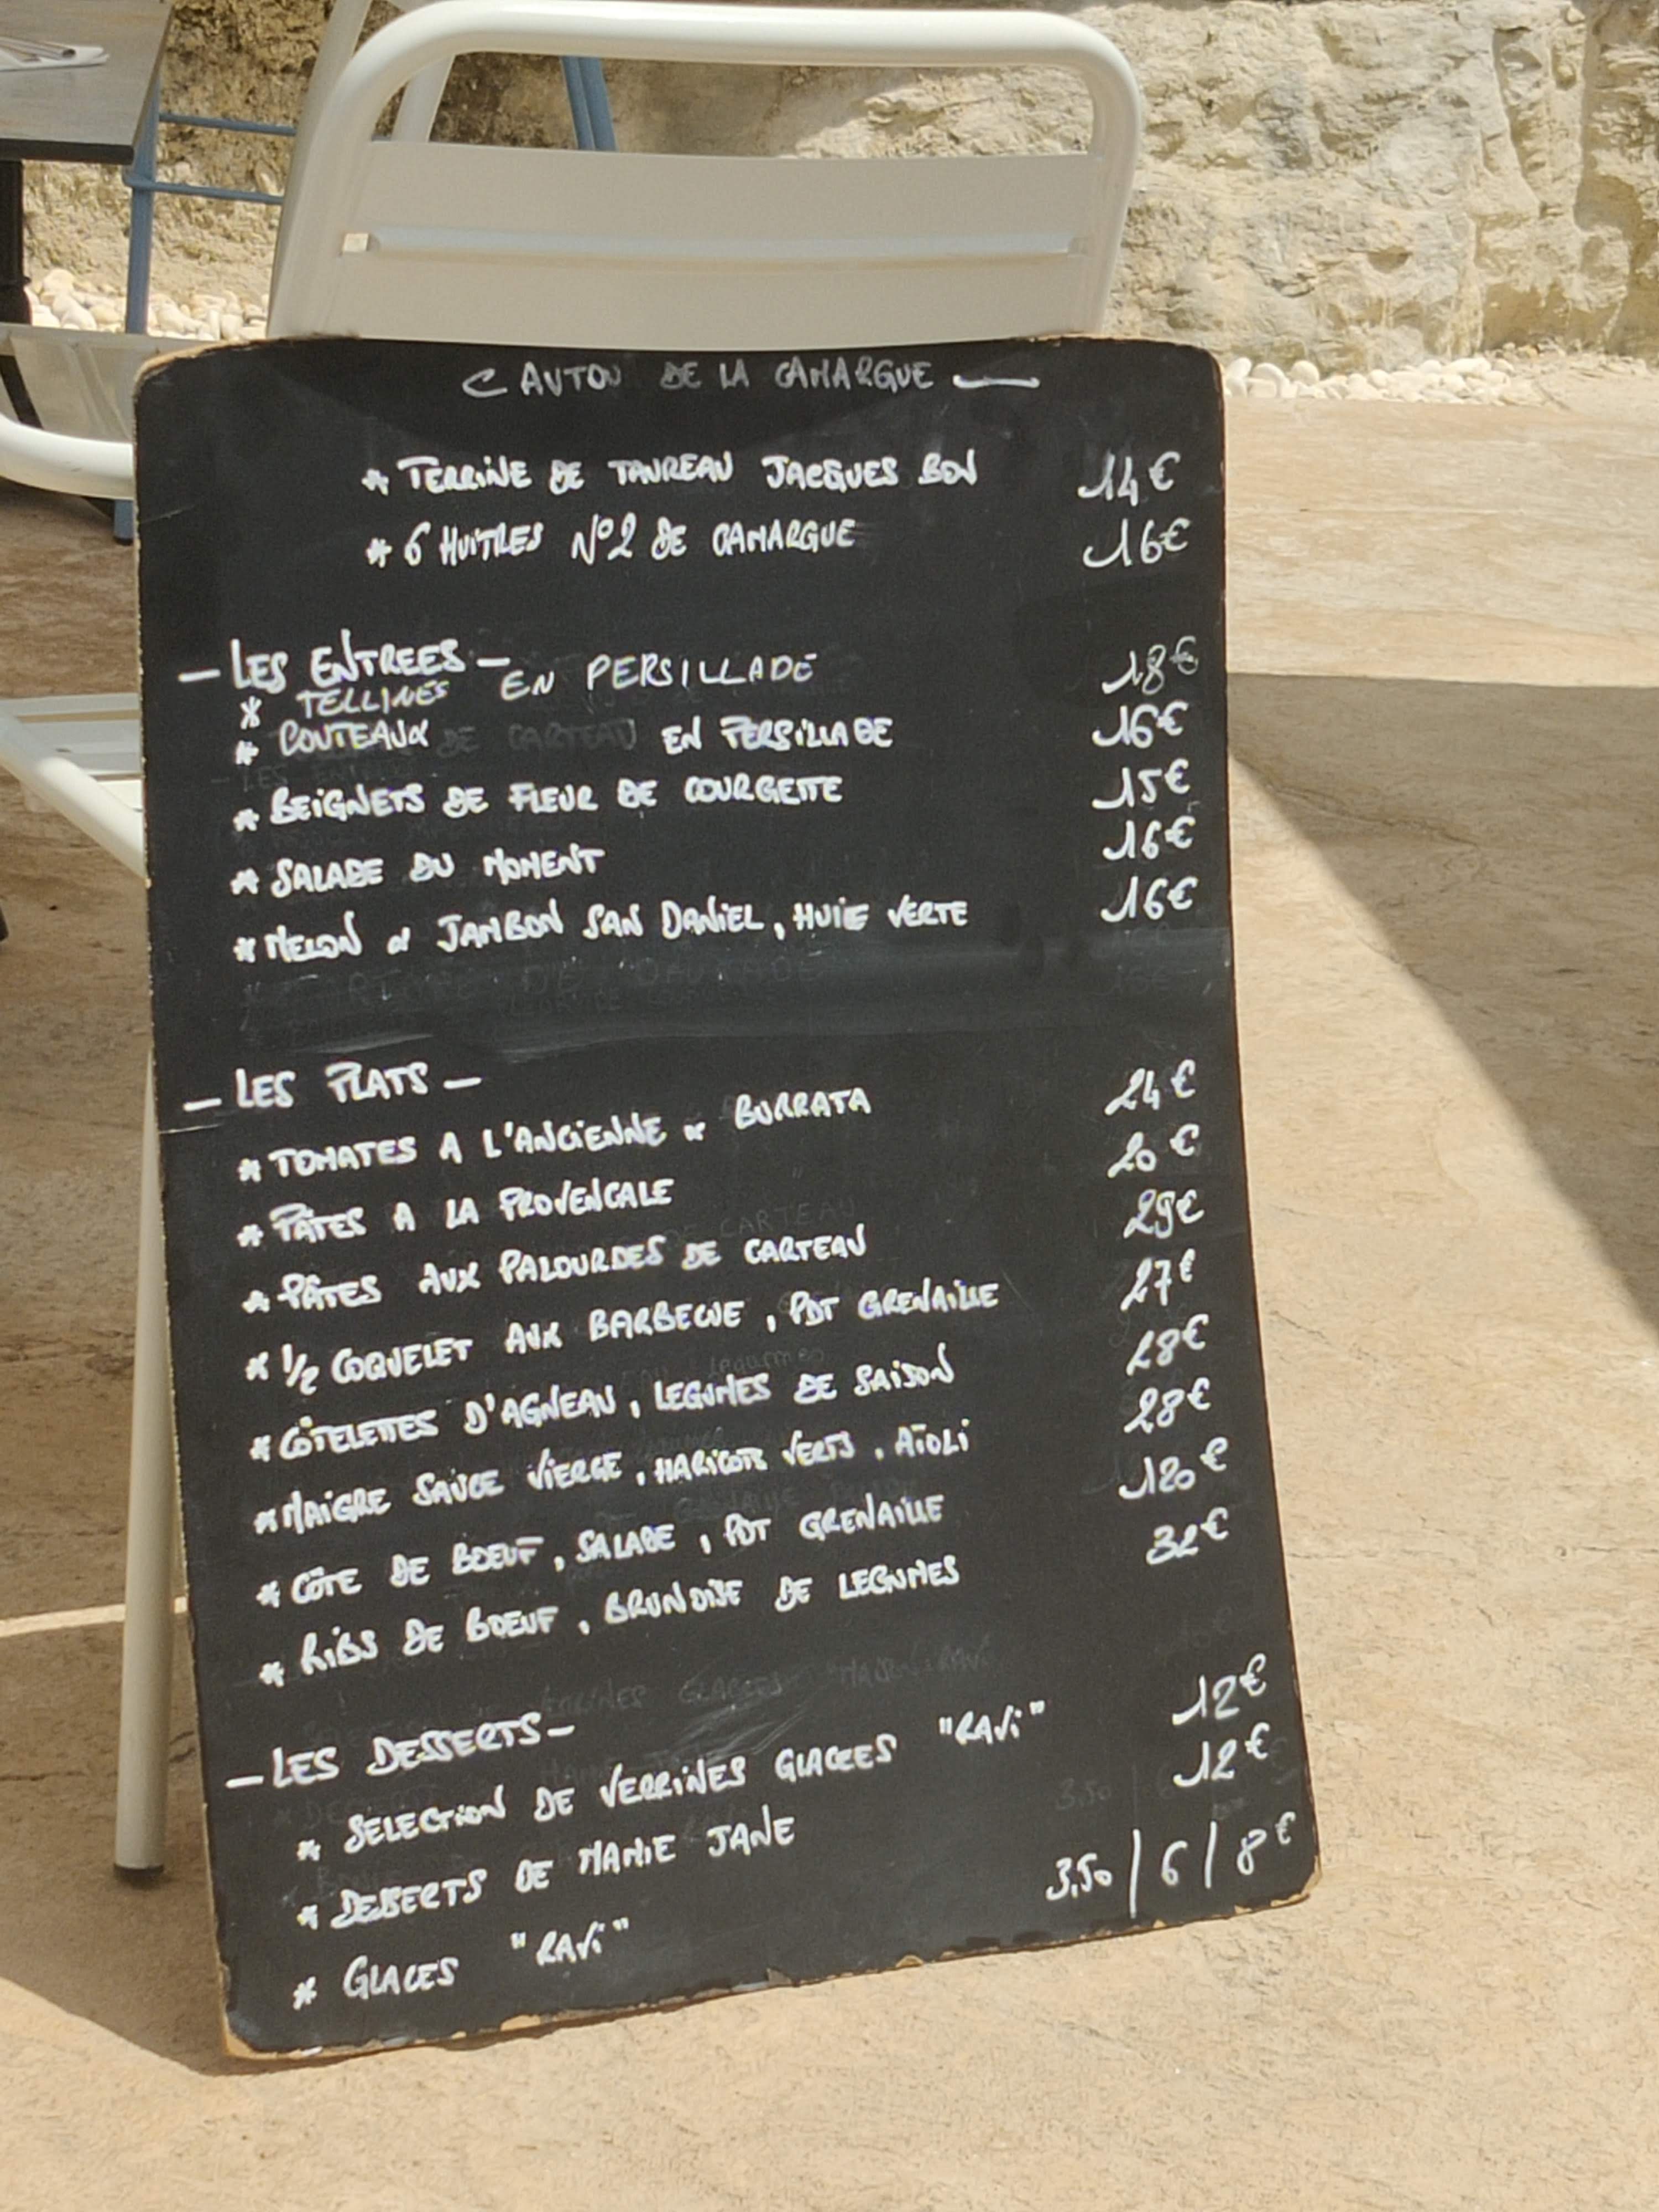 AUTOU DE LA CAMARGUE —
* TERRINE DE TAUREAU JACQUES BON 14€
* 6 HUITRES N°2 DE CAMARGUE 16€
— LES ENTREES —
* TELLINES EN PERSILLADE 18€
* COUTEAUX EN PERSILLADE 16€
* BEIGNETS DE FLEUR DE COURGETTE 15€
* SALADE DU MOMENT 16€
* MELON & JAMBON SAN DANIEL, HUILE VERTE 16€
— LES PLATS —
* TOMATES A L'ANCIENNE & BURRATA 24€
* PÂTES A LA PROVENCALE 20€
* PÂTES AUX PALOURDES DE CARTEAU 29€
* 1/2 COQUELET AUX BARBECUE, PDT GRENAILLE 27€
* CÔTELETTES D'AGNEAU, LEGUMES DE SAISON 28€
* MAIGRE SAUCE VIERGE, HARICOTS VERTS, AÏOLI 28€
* CÔTE DE BOEUF, SALADE, PDT GRENAILLE 120€
* RIBS DE BOEUF, BRUNOISE DE LEGUMES 32€
— LES DESSERTS —
* SELECTION DE VERRINES GLACEES "RAVI" 12€
* DESSERTS DE MAMIE JANE 12€
* GLACES "RAVI" 3,50 / 6 / 8€